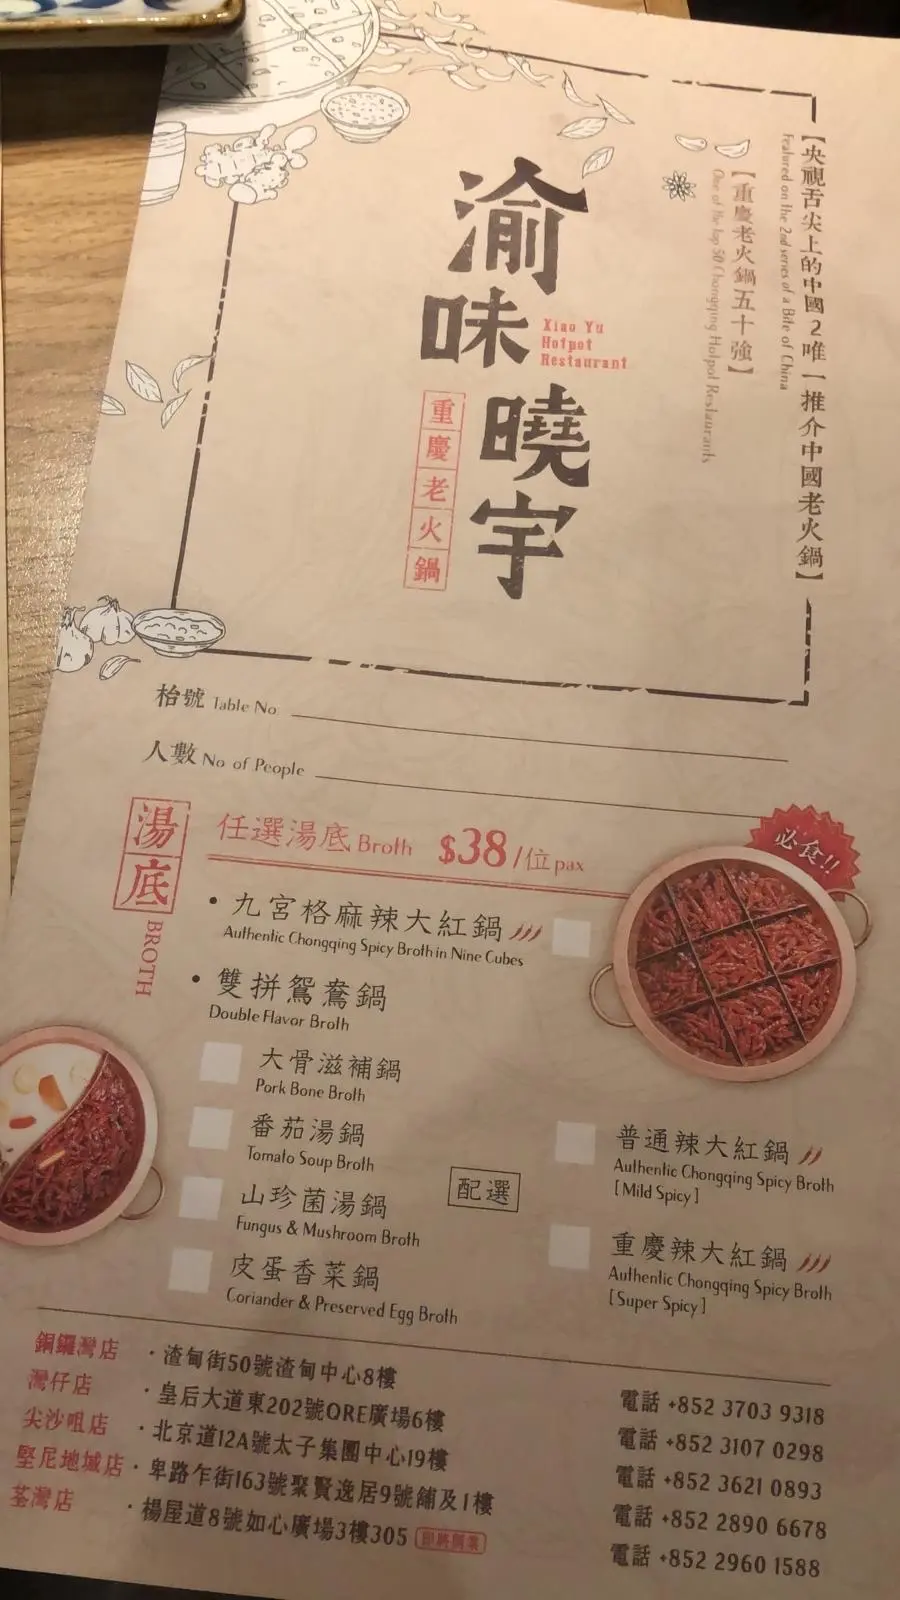 【央視舌尖上的中國2唯一推介中國老火鍋】
Featured on the 2nd series of a Bite of China
【重慶老火鍋五十強】
One of the top 50 Chongqing Hotpot Restaurants
渝味曉宇
Xiao Yu
Hotpot
Restaurant
重慶老火鍋
枱號 Table No
人數 No of People
湯底
BROTH
任選湯底 Broth $38/位 pax
必食!!
• 九宮格麻辣大紅鍋
Authentic Chongqing Spicy Broth in Nine Cubes
• 雙拼鴛鴦鍋
Double Flavor Broth
大骨滋補鍋
Pork Bone Broth
番茄湯鍋
Tomato Soup Broth
山珍菌湯鍋
Fungus & Mushroom Broth
皮蛋香菜鍋
Coriander & Preserved Egg Broth
配選
普通辣大紅鍋
Authentic Chongqing Spicy Broth
[Mild Spicy]
重慶辣大紅鍋
Authentic Chongqing Spicy Broth
[Super Spicy]
銅鑼灣店 · 渣甸街50號渣甸中心8樓 電話 +852 3703 9318
灣仔店 · 皇后大道東202號QRE廣場6樓 電話 +852 3107 0298
尖沙咀店 · 北京道12A號太子集團中心19樓 電話 +852 3621 0893
堅尼地城店 · 卑路乍街163號聚賢逸居9號舖及1樓 電話 +852 2890 6678
荃灣店 · 楊屋道8號如心廣場3樓305 即將開業 電話 +852 2960 1588